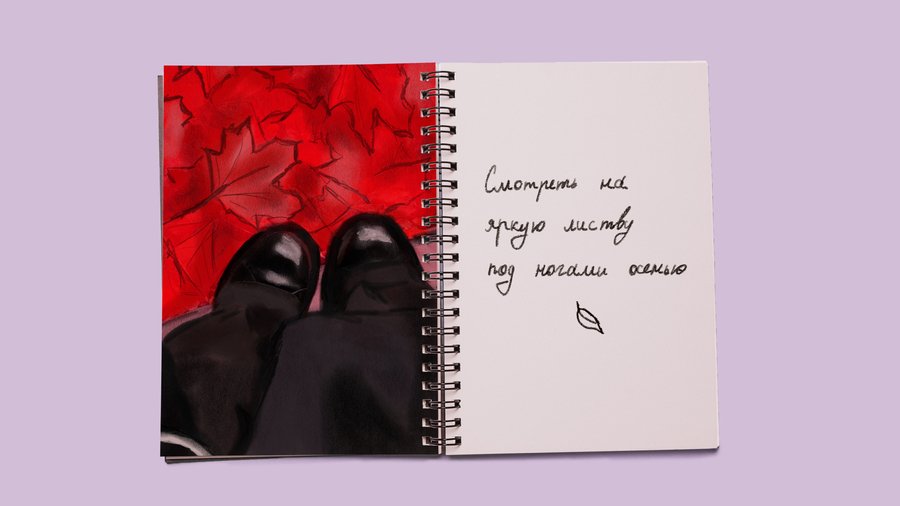 Смотреть на
яркую листву
под ногами осенью